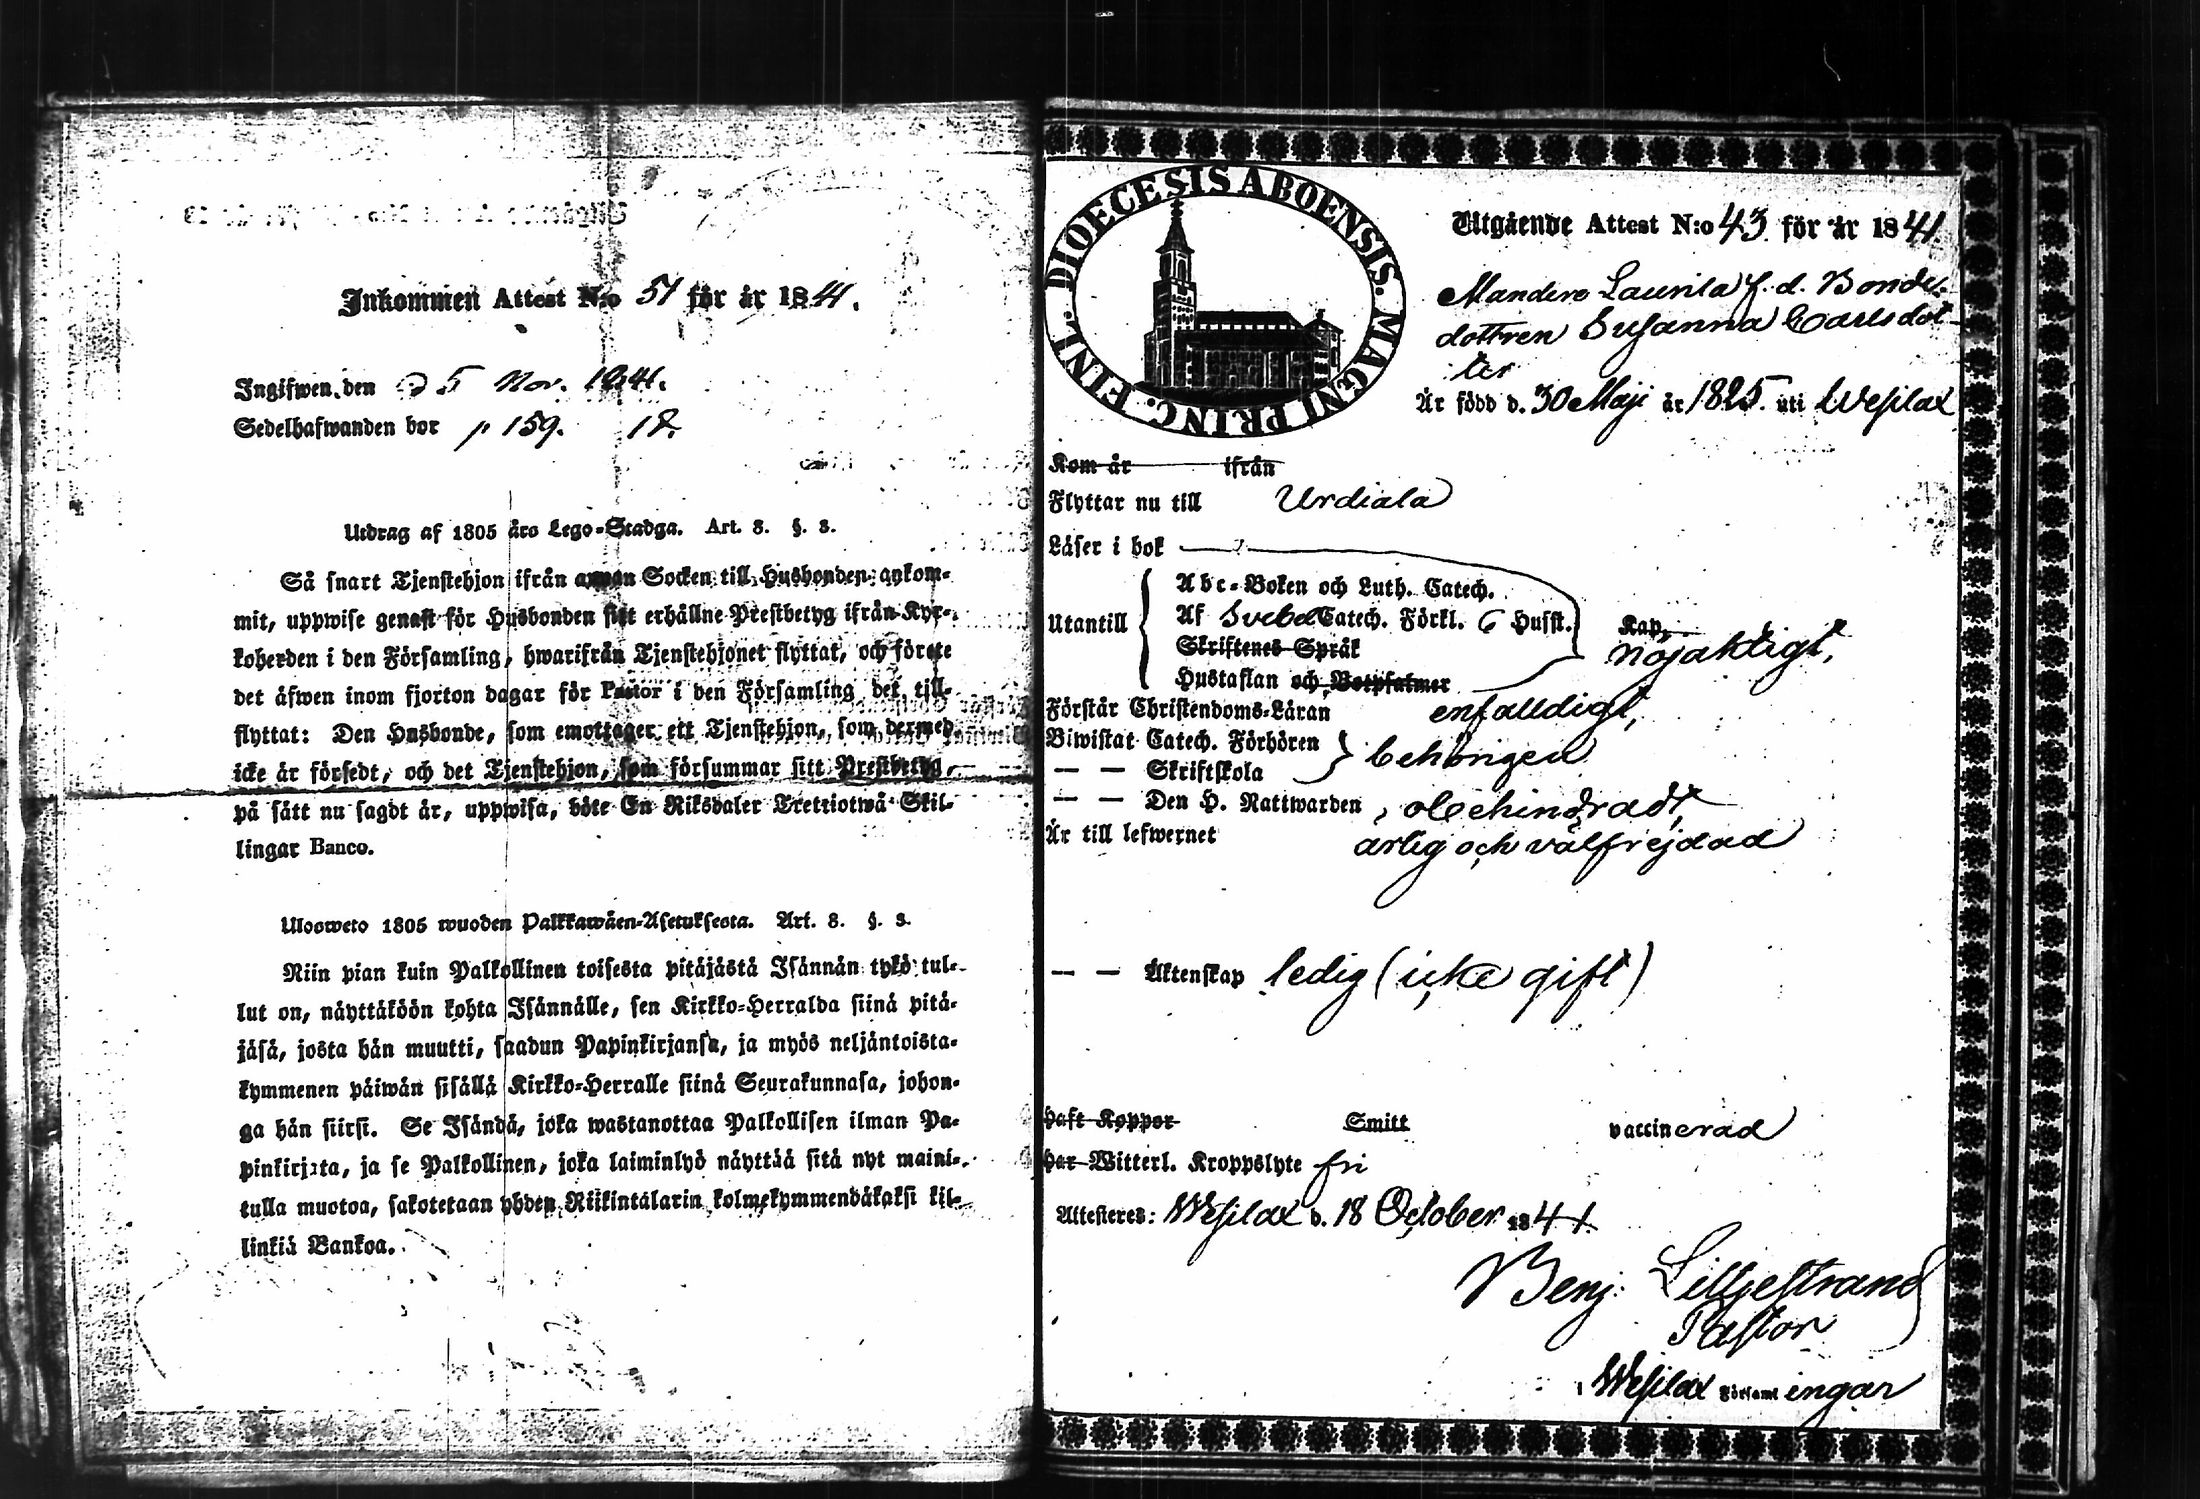 Inkommen Attest N:o 51 för år 1841.
Ingifwen den 25 Nov. 1841.
Sedelhafwanden bor p 159. 18.
Utdrag af 1805 års Lego-Stadga. Art. 8. §. 3.
Så snart Tjenstehjon ifrån annan Socken till Husbonden ankom-
mit, uppwise genast för Husbonden sitt erhållne Prestbetyg ifrån Kyr-
koherden i den Församling, hwarifrån Tjenstehjonet flyttat, och förete
det äfwen inom fjorton dagar för Pastor i den Församling det till-
flyttat: Den Husbonde, som emottager ett Tjenstehjon, som dermed
icke är försedt, och det Tjenstehjon, som försummar sitt Prestbetyg,
på sätt nu sagdt är, uppwisa, böte En Riksdaler Trettiotwå Skil-
lingar Banco.
Ulosweto 1805 wuoden Palkkawäen-Asetuksesta. Art. 8. §. 3.
Niin pian kuin Palkollinen toisesta pitäjästä Isännän tykö tul-
lut on, näyttäköön kohta Isännälle, sen Kirkko-Herralda siinä pitä-
jäsä, josta hän muutti, saadun Papinkirjansa, ja myös neljäntoista-
kymmenen päiwän sisällä Kirkko-Herralle siinä Seurakunnasa, johon-
ga hän siirsi. Se Isändä, joka wastanottaa Palkollisen ilman Pa-
pinkirjata, ja se Palkollinen, joka laiminlyö näyttää sitä nyt maini-
tulla muotoa, sakotetaan yhden Riikintalarin kolmekymmendäkaksi kil-
linkiä Bankoa.
DIOECESIS ABOENSIS. MAGNI PRINC. FINL.
Utgående Attest N:o 43 för år 1841
Mandere Laurila f. d. Bonde-
dottren Susanna Carlsdot-
ter
Är född d. 30 Maji år 1825. uti Wesilax
Kom år ifrån
Flyttar nu till Urdiala
Läser i bok
Utantill
Abc-Boken och Luth. Catech.
Af Svebel Catech. Förkl. 6 Hufst. Kap.
Skriftenes Språk nöjaktigt,
Hustaflan och Botpsalmer
Förstår Christendoms-Läran enfalldigt,
Biwistat Catech. Förhören behörigen
— — Skriftskola
— — Den H. Nattwarden, obehindradt,
Är till lefwernet ärlig och välfrejdad
— — Äktenskap ledig (icke gift)
haft Koppor Smitt vaccinerad
har Witterl. Kroppslyte fri
Attesteres: Wesilax d. 18 October 1841.
Benj: Lilljestrand
Pastor
i Wesilax Församlingar